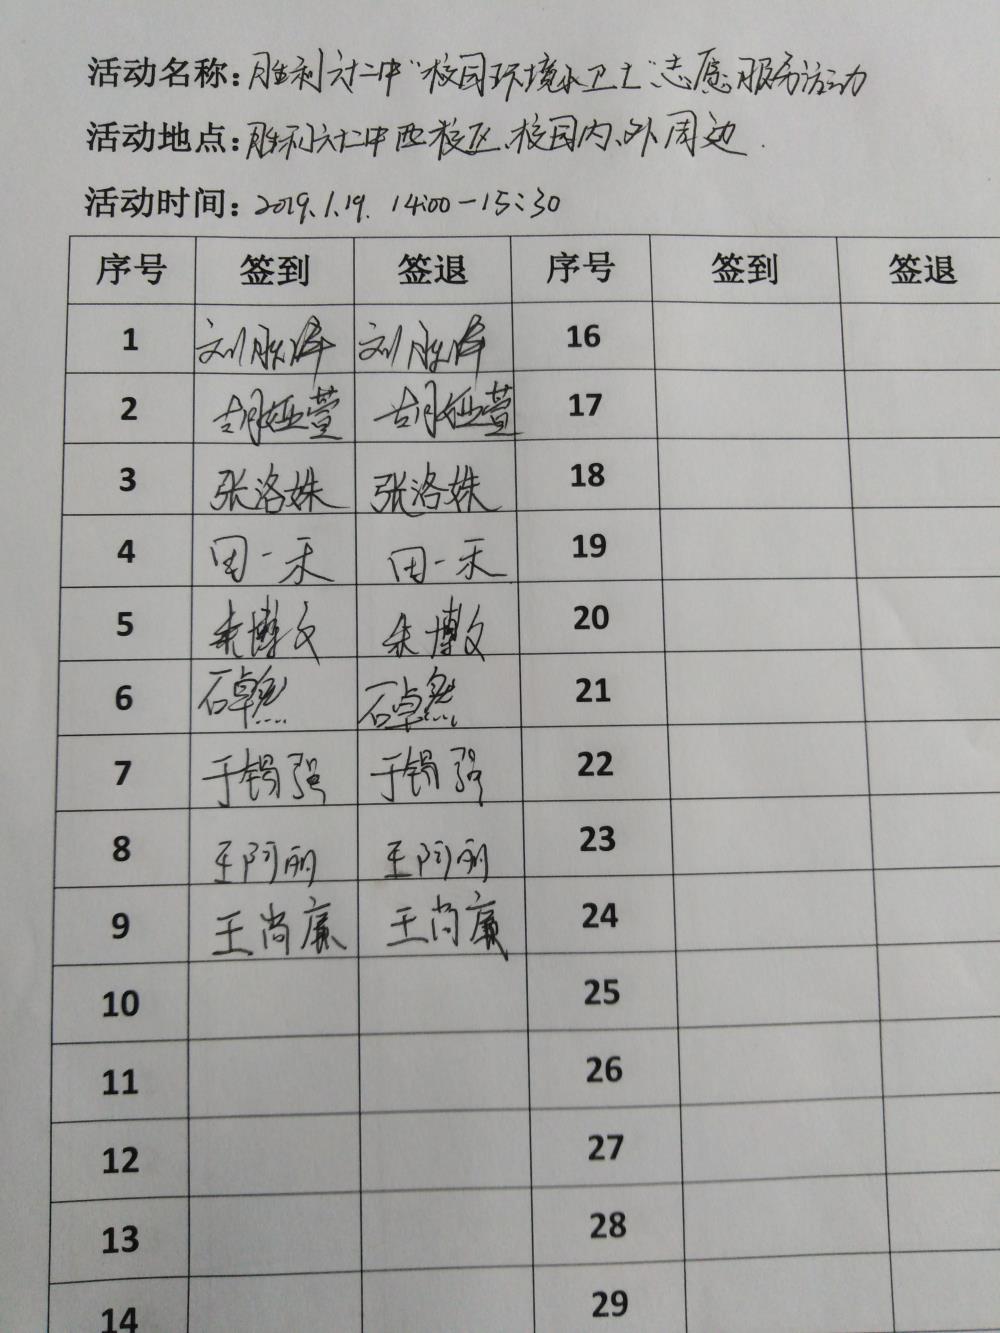 活动名称:胜利六十二中"校园环境小卫士"志愿服务活动
活动地点:胜利六十二中西校区、校园内、外周边.
活动时间:2019.1.19. 14:00-15:30
序号 签到 签退 序号 签到 签退
1 刘 刘 16
2 胡娅萱 胡娅萱 17
3 张洛姝 张洛姝 18
4 田一禾 田一禾 19
5 朱博文 朱博文 20
6 石卓然 石卓然 21
7 于锡强 于锡强 22
8 王阿丽 王阿丽 23
9 王尚廉 王尚廉 24
10 25
11 26
12 27
13 28
14 29